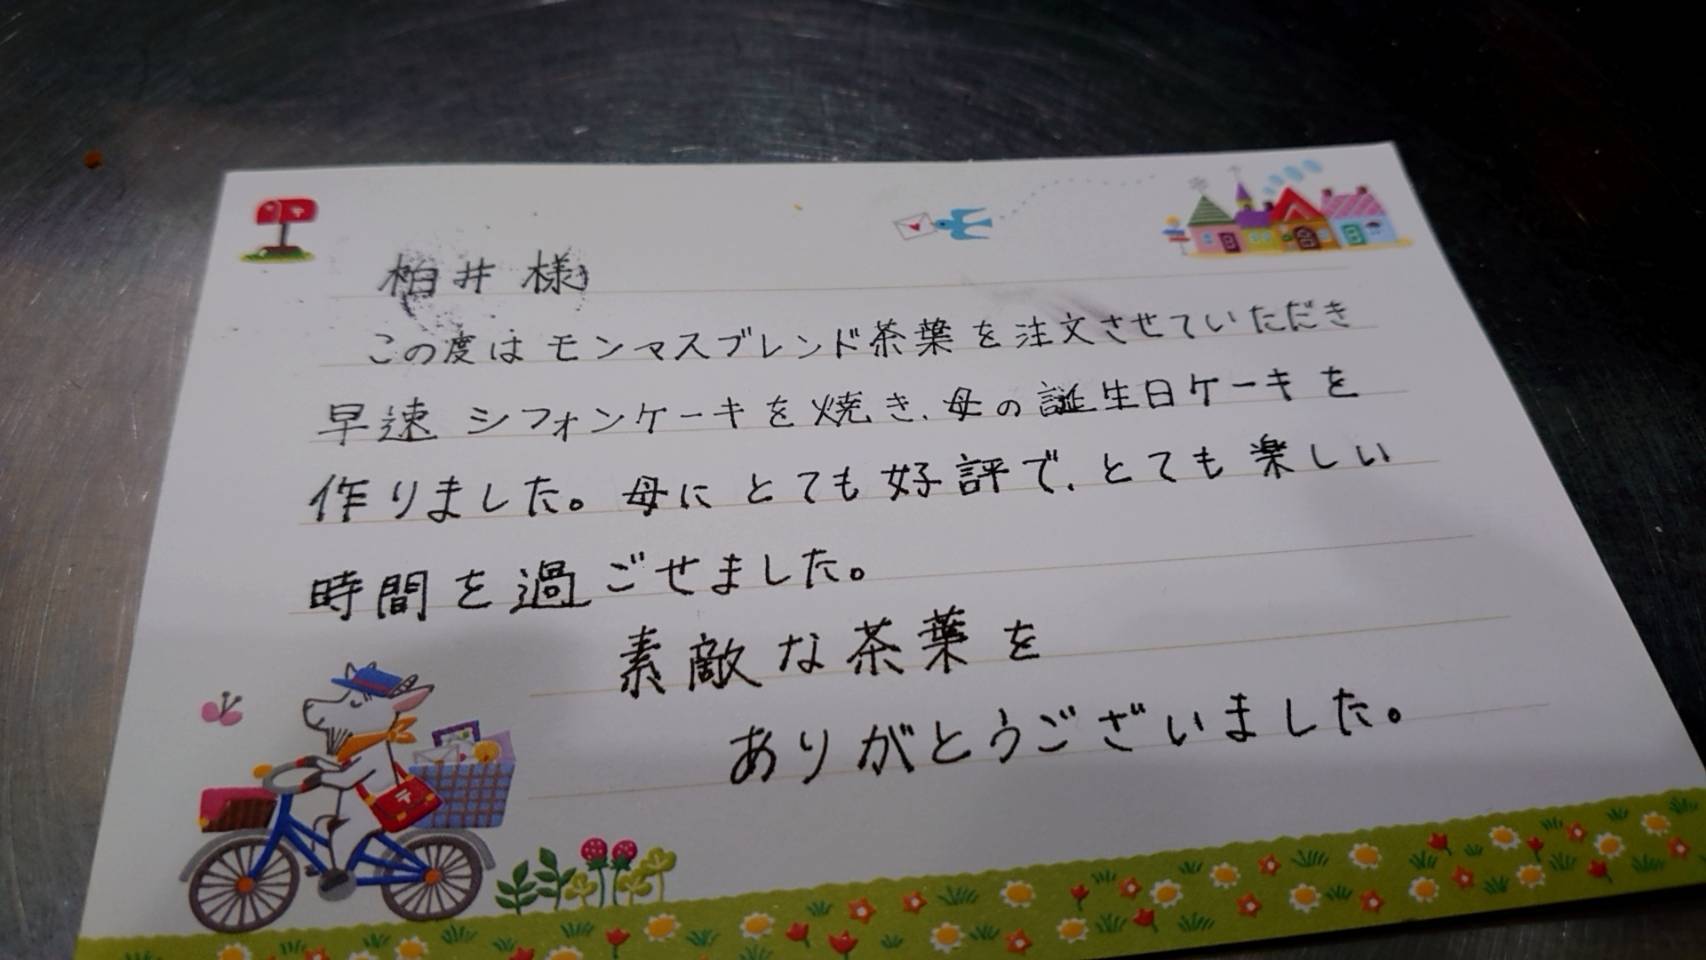 柏井様
この度はモンマスブレンド茶葉を注文させていただき
早速シフォンケーキを焼き、母の誕生日ケーキを
作りました。母にとても好評で、とても楽しい
時間を過ごせました。
素敵な茶葉を
ありがとうございました。